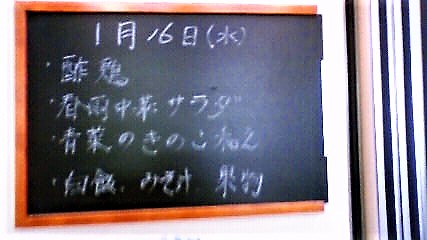 1月16日(水)
・酢鶏
・春雨中華サラダ
・青菜のきのこ和え
・白飯 みそ汁 果物